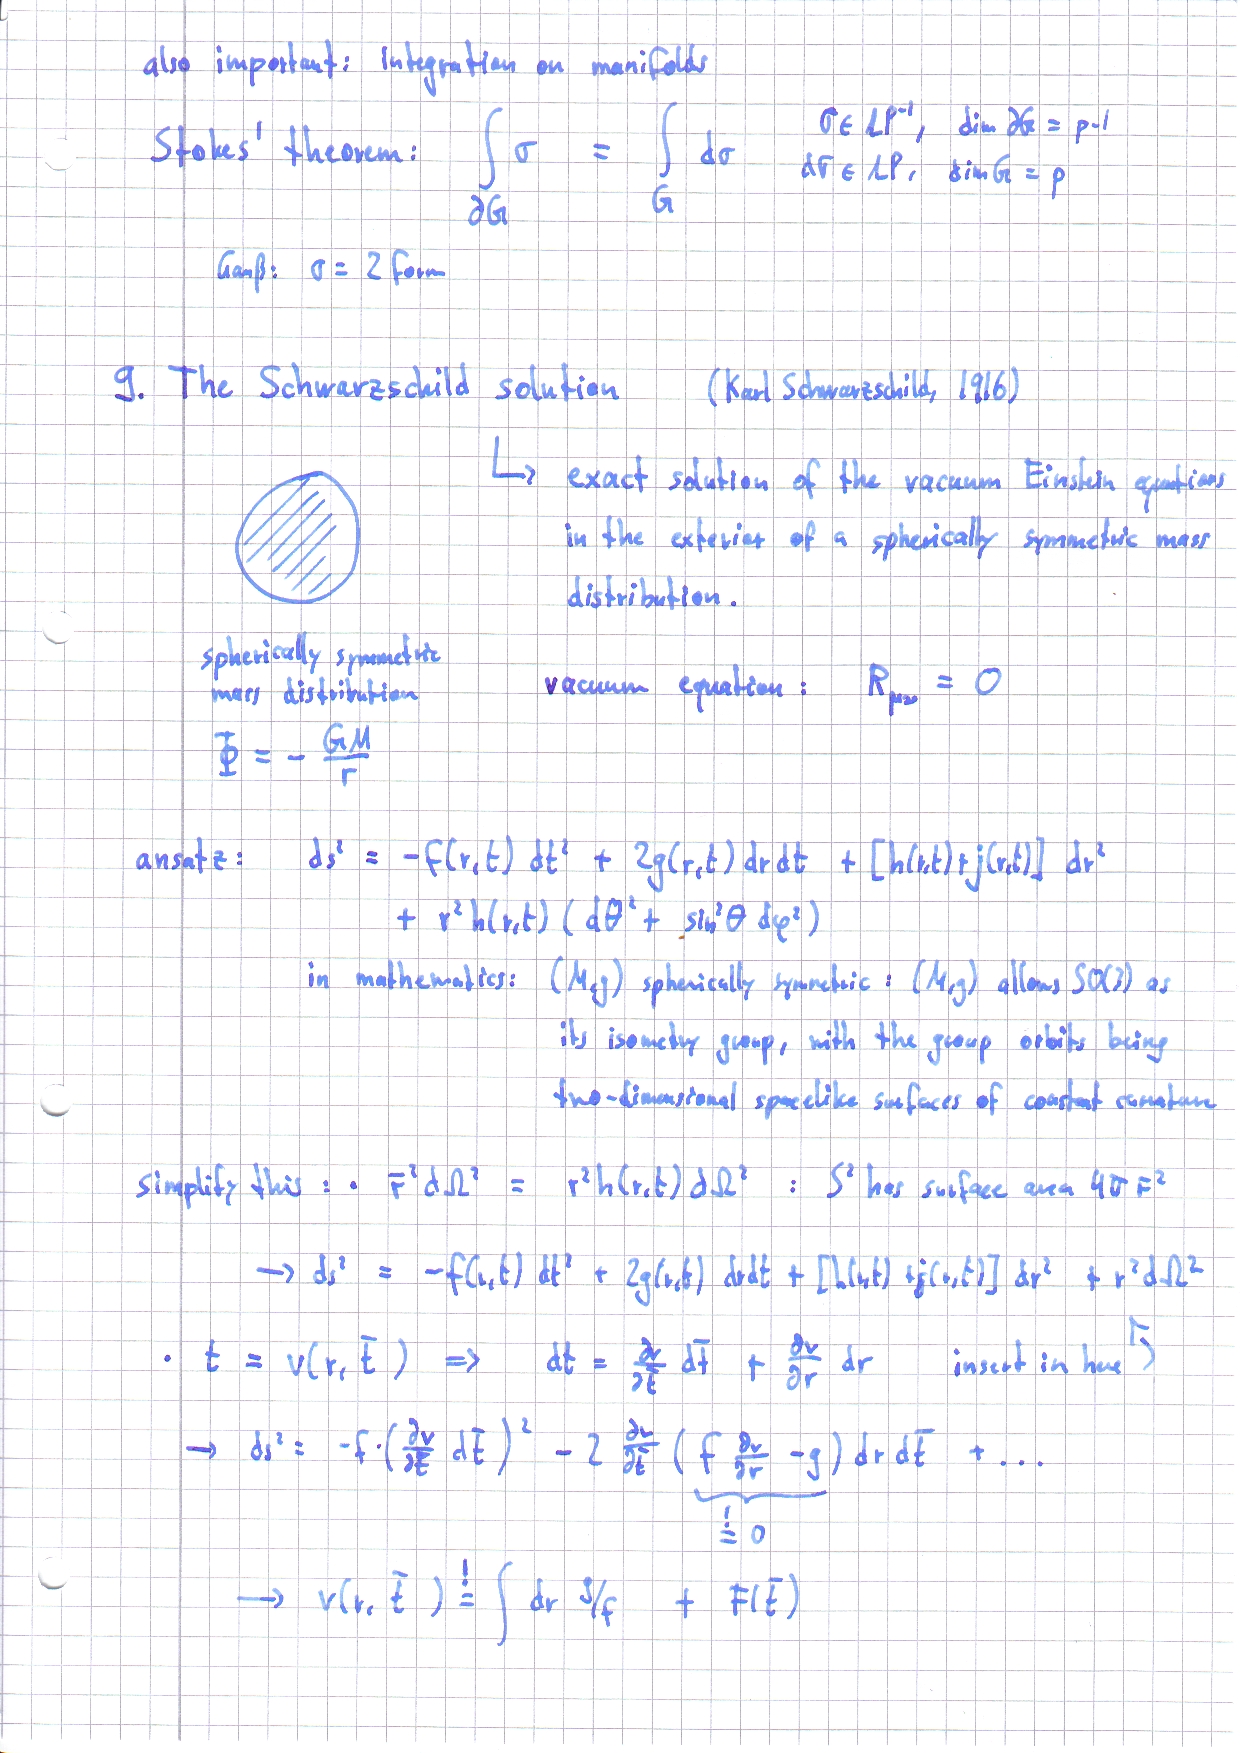 also important: Integration on manifolds
Stokes' theorem: ∫_∂G σ = ∫_G dσ σ ∈ Λ^{p-1}, dim ∂G = p-1
dσ ∈ Λ^p, dim G = p
Gauß: σ = 2 form
9. The Schwarzschild solution (Karl Schwarzschild, 1916)
↳ exact solution of the vacuum Einstein equations
in the exterior of a spherically symmetric mass
distribution.
spherically symmetric
mass distribution
vacuum equation: R_μν = 0
Φ = - GM/r
ansatz: ds² = -f(r,t) dt² + 2g(r,t) dr dt + [h(r,t)+j(r,t)] dr²
+ r² h(r,t) (dθ² + sin²θ dφ²)
in mathematics: (M,g) spherically symmetric: (M,g) allows SO(3) as
its isometry group, with the group orbits being
two-dimensional spacelike surfaces of constant curvature
simplify this: • r̄² dΩ² = r² h(r,t) dΩ² : S² has surface area 4π r̄²
→ ds² = -f(r,t) dt² + 2g(r,t) dr dt + [h(r,t)+j(r,t)] dr² + r² dΩ²
• t = v(r, t̄) ⇒ dt = ∂v/∂t̄ dt̄ + ∂v/∂r dr insert in here
→ ds² = -f·(∂v/∂t̄ dt̄)² - 2 ∂v/∂t̄ (f ∂v/∂r - g) dr dt̄ + ...
≟! 0
→ v(r, t̄) =! ∫ dr g/f + F(t̄)